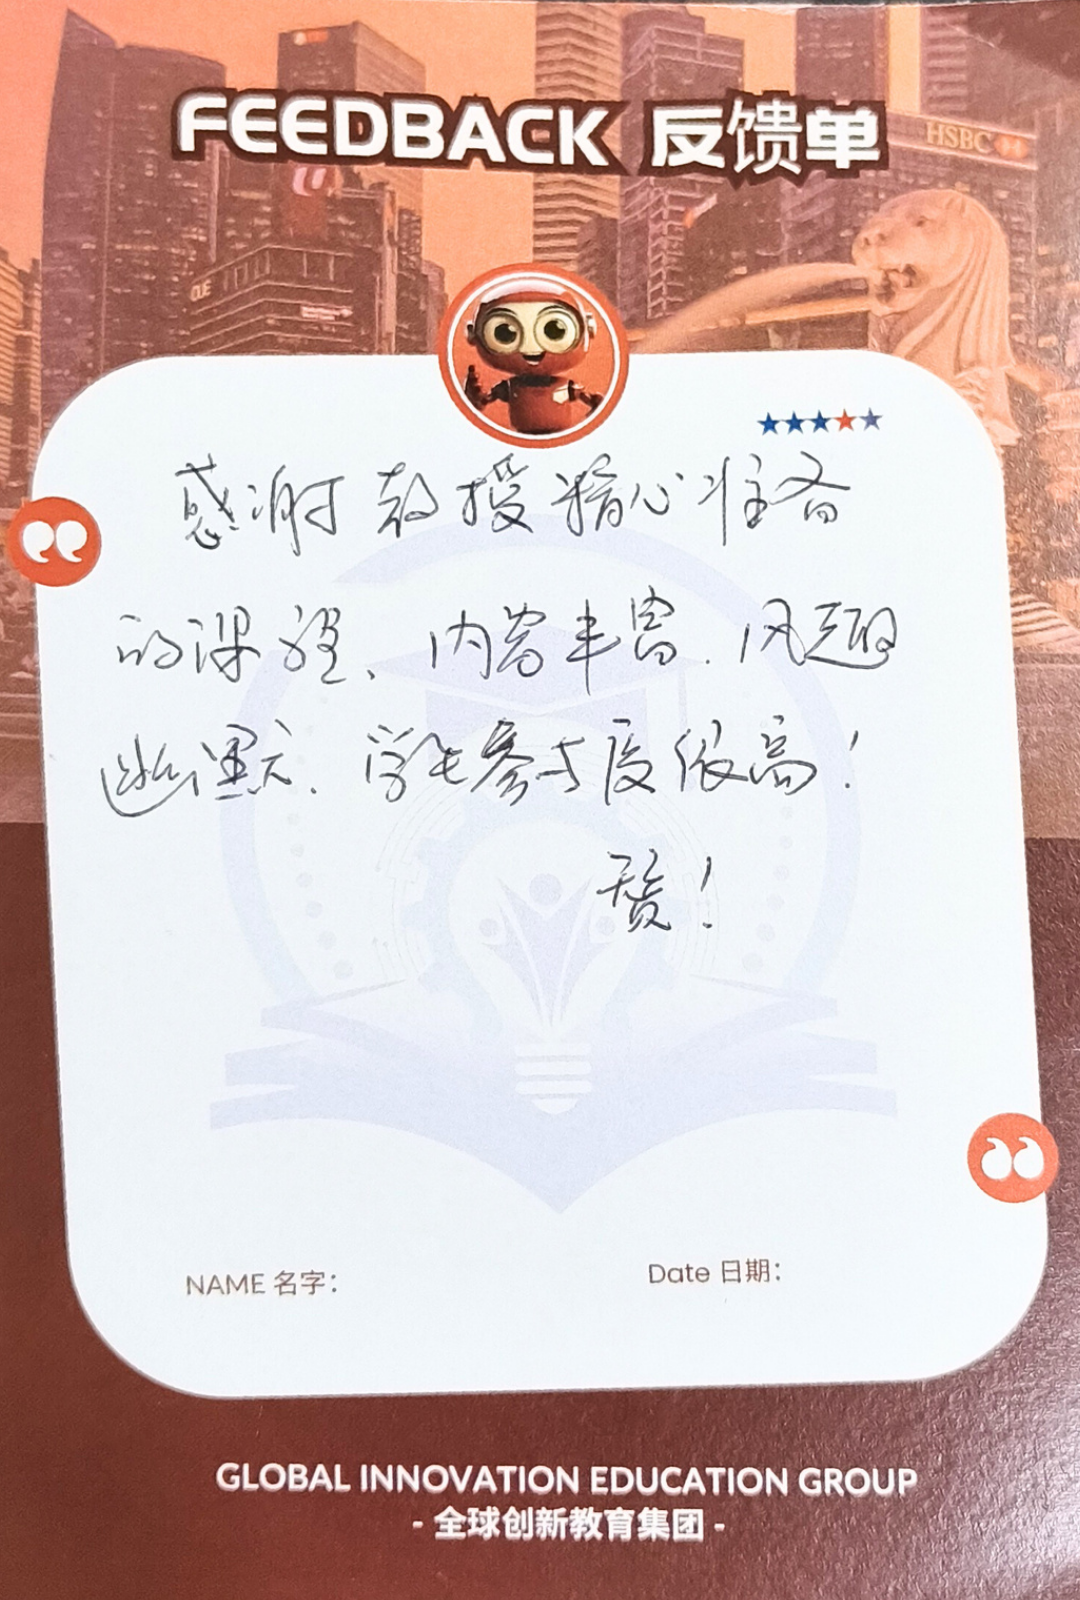 FEEDBACK 反馈单
HSBC
OUE
感谢教授精心准备
的课程、内容丰富、风趣
幽默、学生参与度很高！
赞！
NAME 名字:
Date 日期:
GLOBAL INNOVATION EDUCATION GROUP
- 全球创新教育集团 -